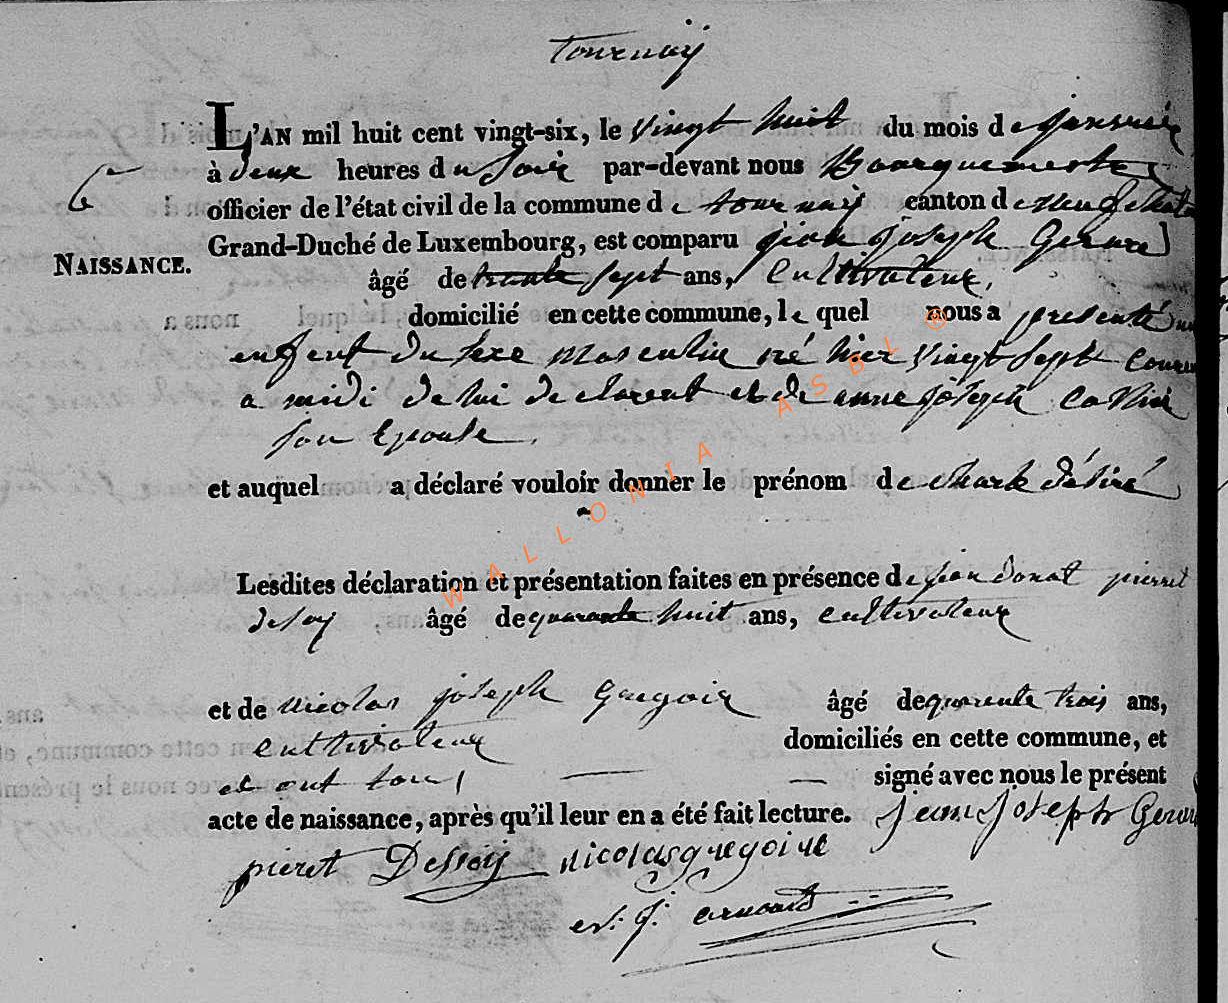 tournaij
L'AN mil huit cent vingt-six, le vingt huit du mois de janvier
à deux heures du Soir par-devant nous Bourguemestre
6
officier de l'état civil de la commune de tournaij canton de neufchat
Grand-Duché de Luxembourg, est comparu jean joseph Gerard
NAISSANCE.
âgé de trente sept ans, Cultivateur,
domicilié en cette commune, le quel nous a presenté un
enfent du sexe masculin né hier vingt sept courent
a midi de lui declarent et de anne joseph
son Epouse.
et auquel a déclaré vouloir donner le prénom de Désiré
Lesdites déclaration et présentation faites en présence de jean donat pierret
desoy âgé de quarante huit ans, cultivateur
et de nicolas joseph Gregoir âgé de quarente trois ans,
cultivateur domiciliés en cette commune, et
et ont tous signé avec nous le présent
acte de naissance, après qu'il leur en a été fait lecture. jean joseph Gerard
pieret Dessoij nicolas gregoire
WALLONIA ASBL ®